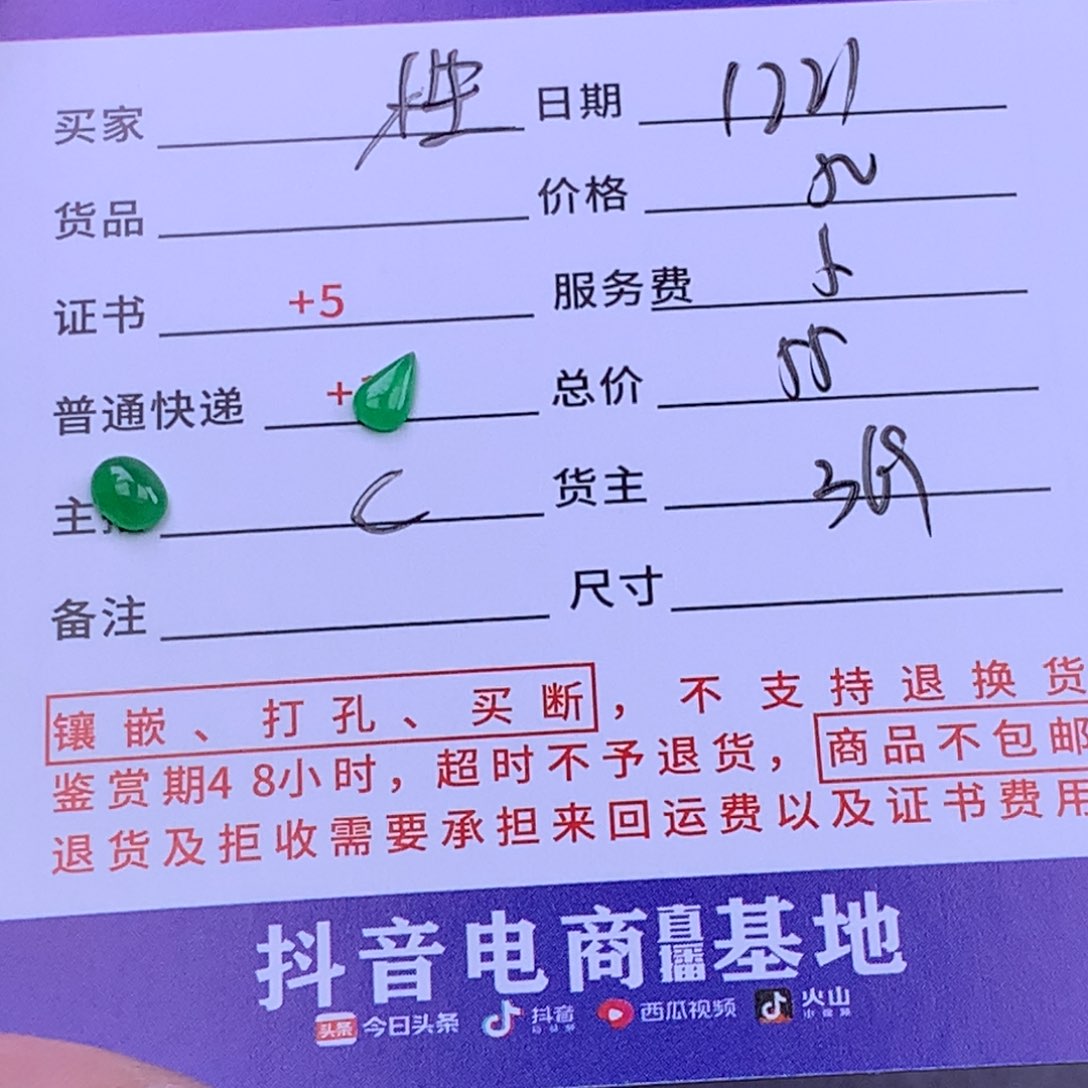 买家 日期 1221
货品 价格
证书 +5 服务费 5
普通快递 + 总价 55
主 C 货主
备注 尺寸
镶嵌、打孔、买断，不支持退换货
鉴赏期48小时，超时不予退货，商品不包邮
退货及拒收需要承担来回运费以及证书费用
抖音电商直播基地
头条 今日头条 抖音 西瓜视频 火山